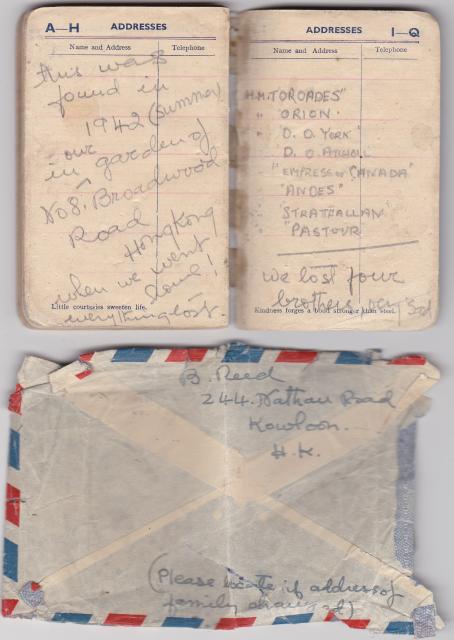 A—H ADDRESSES
Name and Address Telephone
this was
found in
1942 (summer
our
in garden of
No 8, Broadwood
Road
HongKong
when we went
home!
Little courtesies sweeten life.
everything lost.
ADDRESSES I—Q
Name and Address Telephone
H.M.TOROADES"
" ORION'
" D. O. YORK'
" D. O ATHOLL
"EMPRESS OF CANADA"
"ANDES"
"STRATHALLAN"
"PASTOUR"
We lost four
brothers, very sad
Kindness forges a bond stronger than steel.
B. Reed
244. Nathan Road
Kowloon.
H.K.
(Please if address of
family changed)